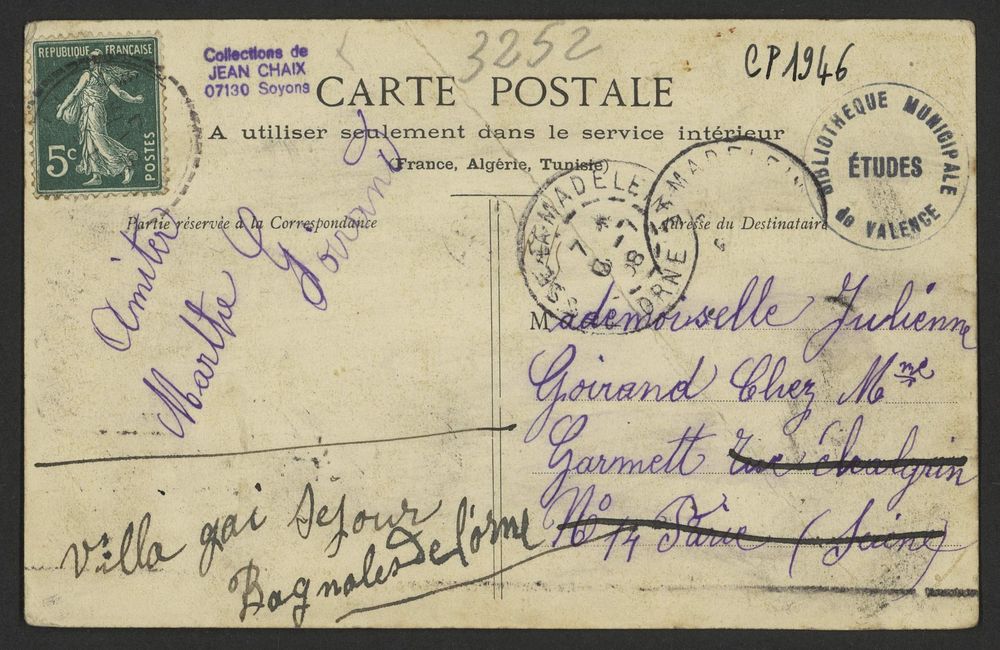 REPUBLIQUE FRANÇAISE
5c
POSTES
Collections de
JEAN CHAIX
07130 Soyons
3252
CP1946
CARTE POSTALE
A utiliser seulement dans le service intérieur
(France, Algérie, Tunisie)
BIBLIOTHEQUE MUNICIPALE
ÉTUDES
de VALENCE
Partie réservée à la Correspondance
Adresse du Destinataire
ORNE
Marthe Goirand
Mademoiselle Julienne
Goirand Chez Mme
Garmett rue Chalgrin
N° 14 Paris (Seine)
Villa gai Sejour
Bagnoles de l'orne